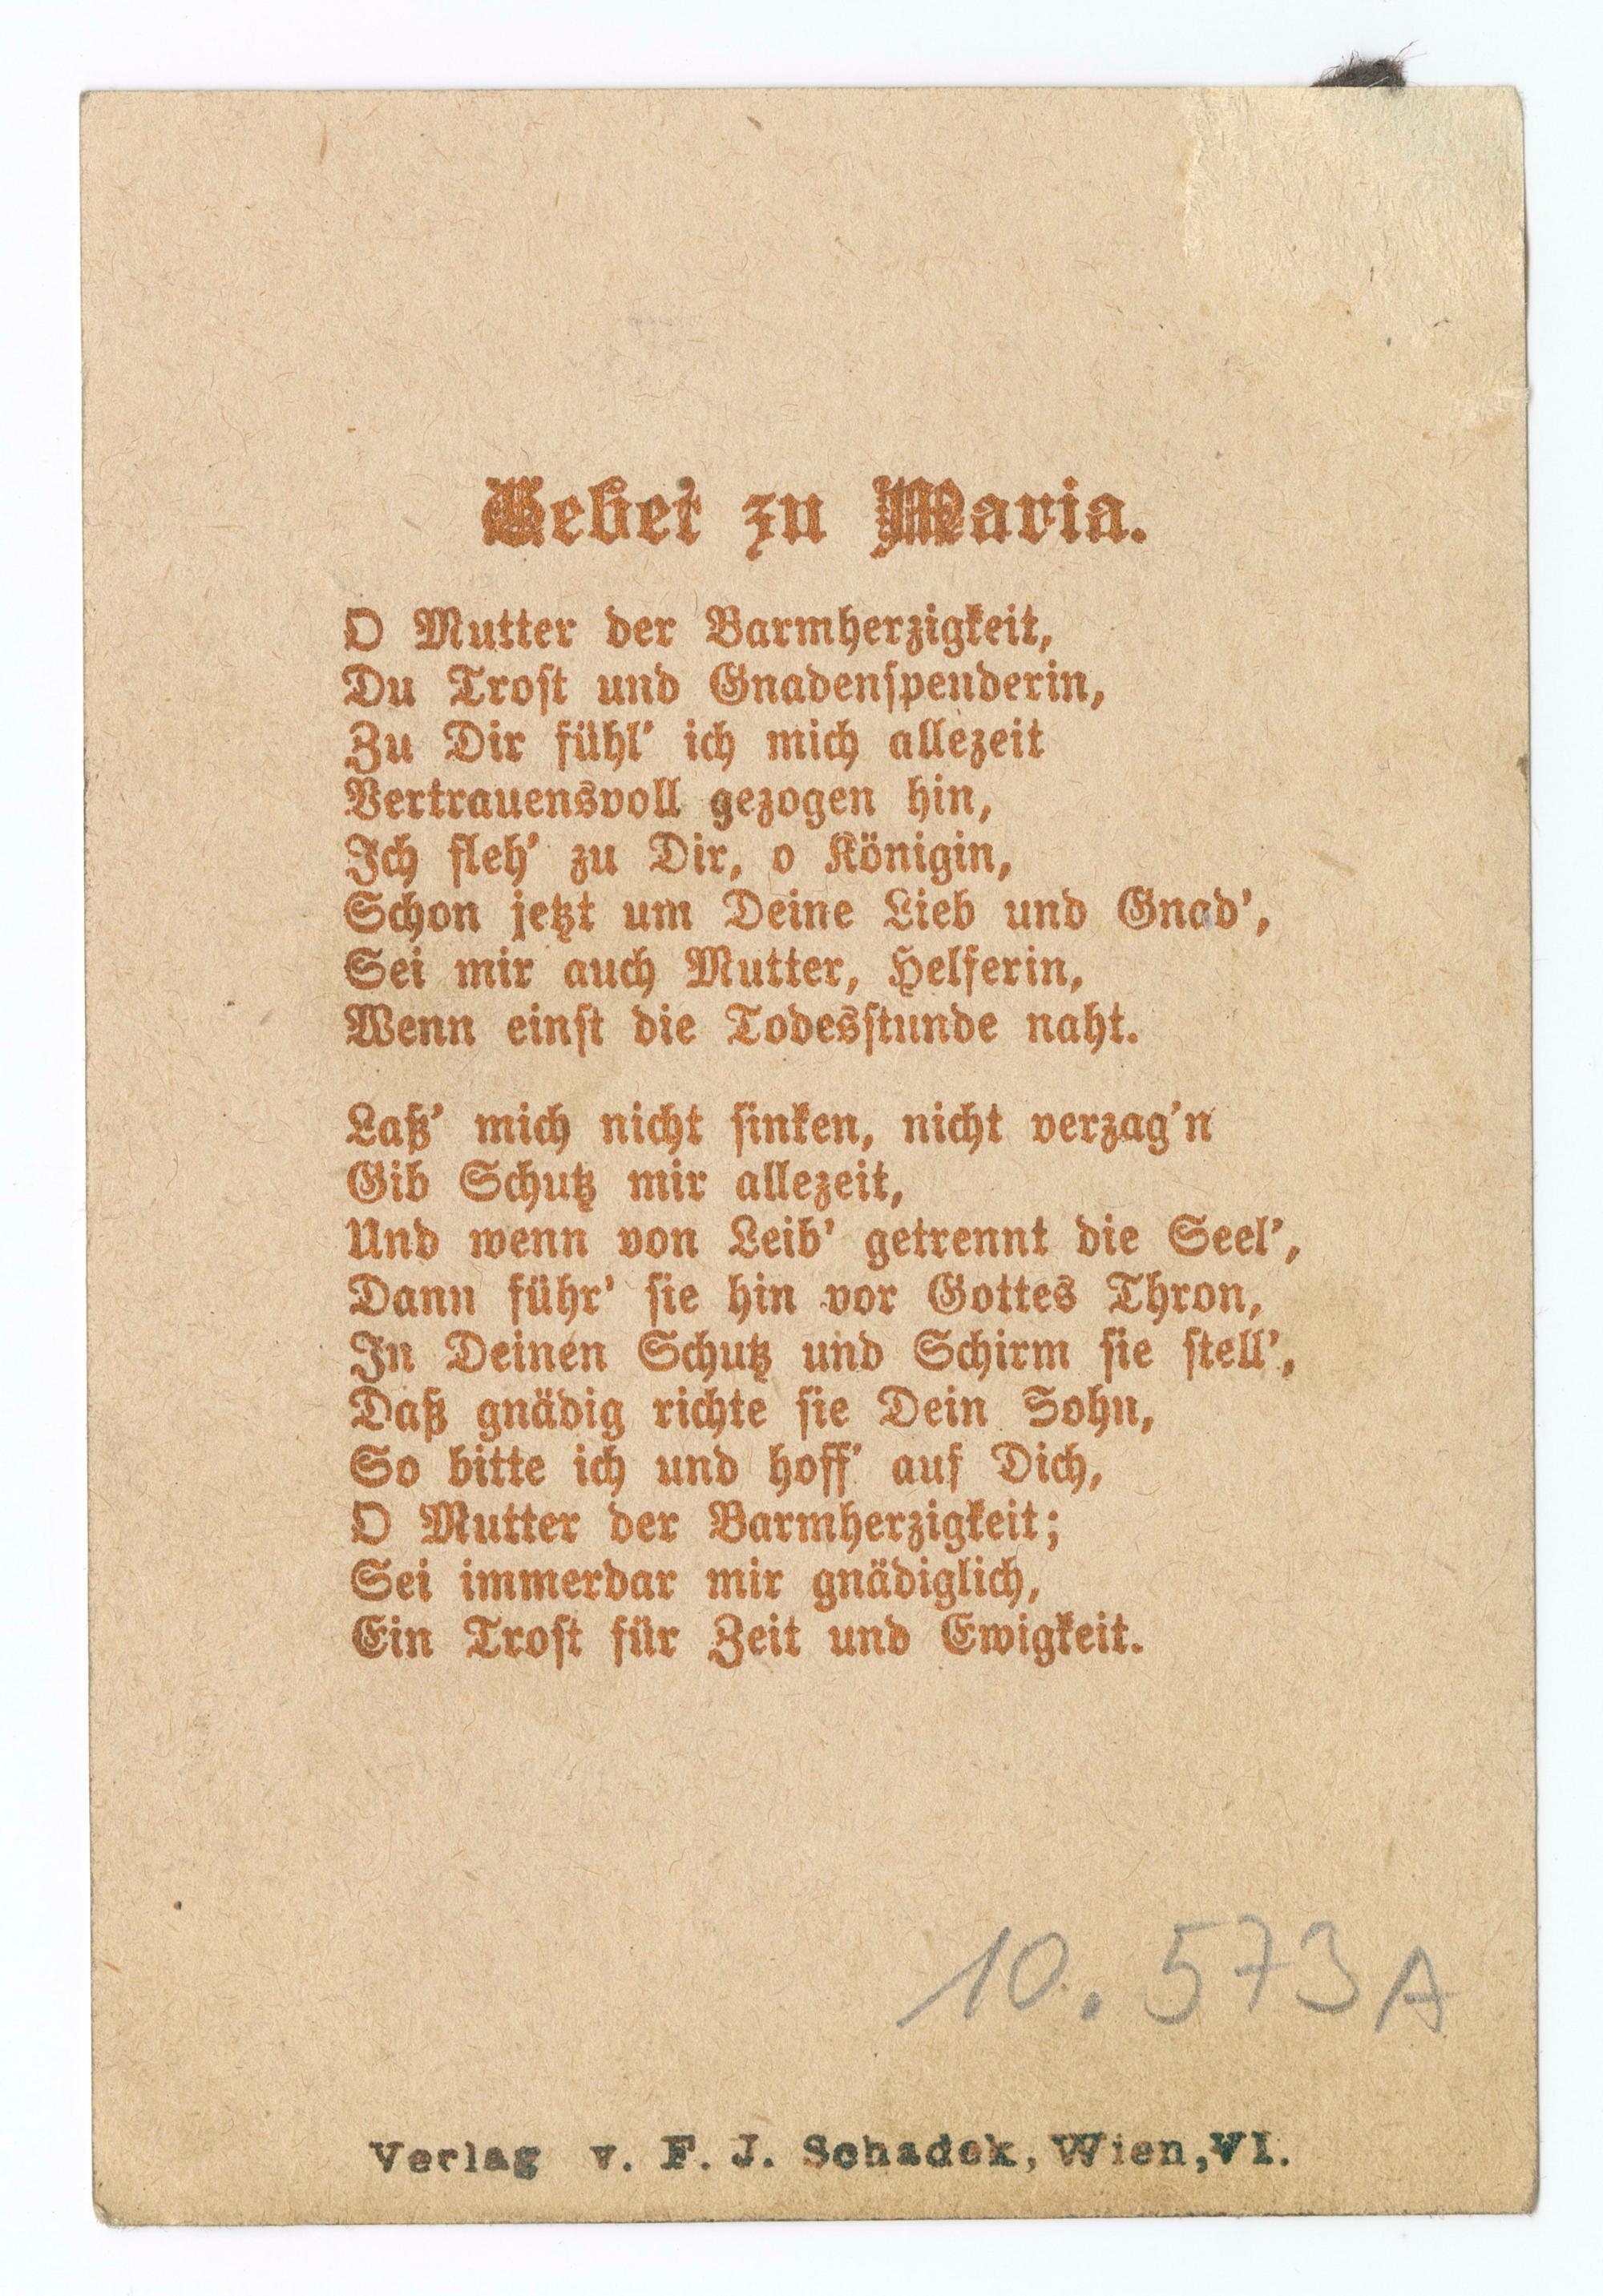 Gebet zu Maria.
O Mutter der Barmherzigkeit,
Du Trost und Gnadenspenderin,
Zu Dir fühl' ich mich allezeit
Vertrauensvoll gezogen hin,
Ich fleh' zu Dir, o Königin,
Schon jetzt um Deine Lieb und Gnad',
Sei mir auch Mutter, Helferin,
Wenn einst die Todesstunde naht.
Laß' mich nicht sinken, nicht verzag'n
Gib Schutz mir allezeit,
Und wenn von Leib' getrennt die Seel',
Dann führ' sie hin vor Gottes Thron,
In Deinen Schutz und Schirm sie stell',
Daß gnädig richte sie Dein Sohn,
So bitte ich und hoff' auf Dich,
O Mutter der Barmherzigkeit;
Sei immerdar mir gnädiglich,
Ein Trost für Zeit und Ewigkeit.
10.573A
Verlag v. F. J. Schadek, Wien, VI.